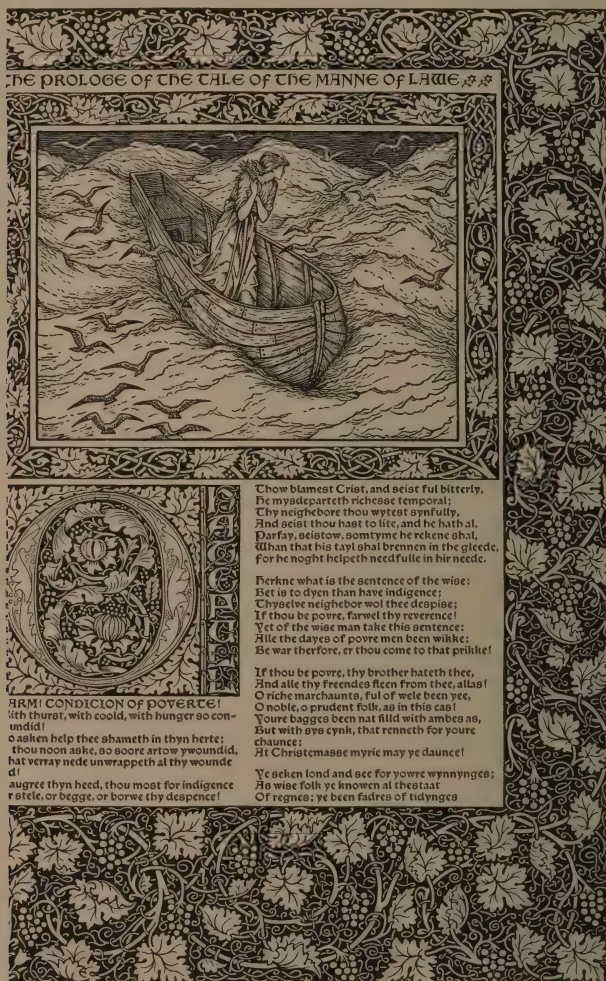 THE PROLOGE OF THE TALE OF THE MANNE OF LAWE
O
ARM! CONDICION OF POVERTE!
ith thurst, with coold, with hunger so con-
undid!
o asken help thee shameth in thyn herte;
thou noon aske, so soore artow ywoundid,
hat verray nede unwrappeth al thy wounde
d!
augree thyn heed, thou most for indigence
r stele, or begge, or borwe thy despence!
Thow blamest Crist, and seist ful bitterly,
He mysdeparteth richesse temporal;
Thy neighebore thou wytest synfully,
And seist thou hast to lite, and he hath al.
Parfay, seistow, somtyme he rekene shal,
Whan that his tayl shal brennen in the gleede,
For he noght helpeth needfulle in hir neede.
Herkne what is the sentence of the wise:
Bet is to dyen than have indigence;
Thyselve neighebor wol thee despise;
If thou be povre, farwel thy reverence!
Yet of the wise man take this sentence:
Alle the dayes of povre men been wikke;
Be war therfore, er thou come to that prikke!
If thou be povre, thy brother hateth thee,
And alle thy freendes fleen from thee, allas!
O riche marchaunts, ful of wele been yee,
O noble, o prudent folk, as in this cas!
Youre bagges been nat fild with ambes as,
But with sys cynk, that renneth for youre
chaunce;
At Christemasse myrie may ye daunce!
Ye seken lond and see for yowre wynnynges;
As wise folk ye knowen al thestaat
Of regnes; ye been fadres of tidynges